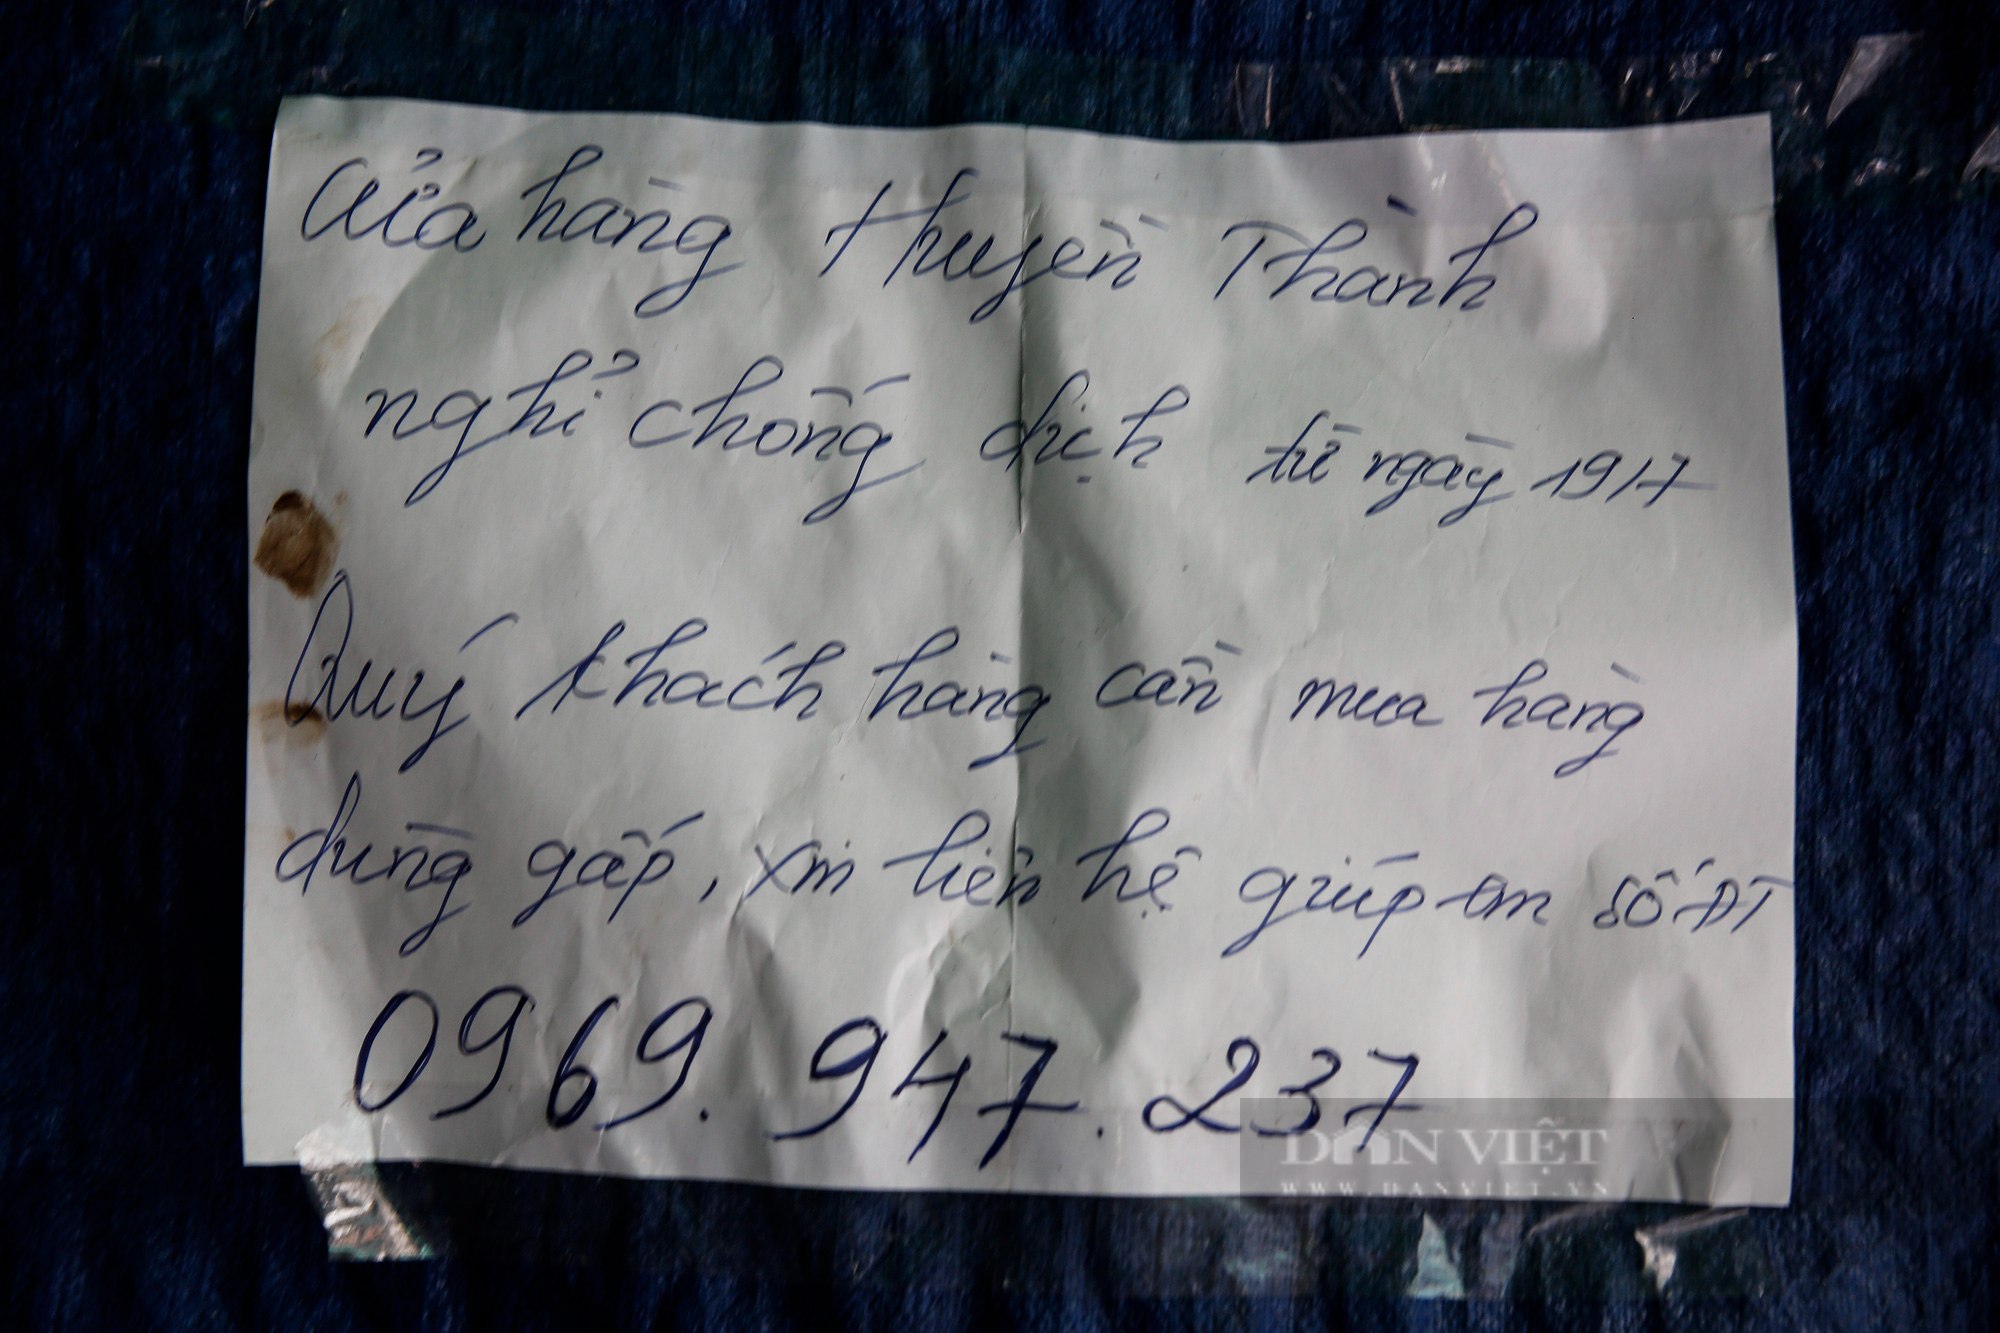 Cửa hàng Huyền Thành
nghỉ chống dịch từ ngày 19/7
Quý khách hàng cần mua hàng
dùng gấp, xin liên hệ giúp em số ĐT
0969.947.237
DÂN VIỆT
WWW.DANVIET.VN